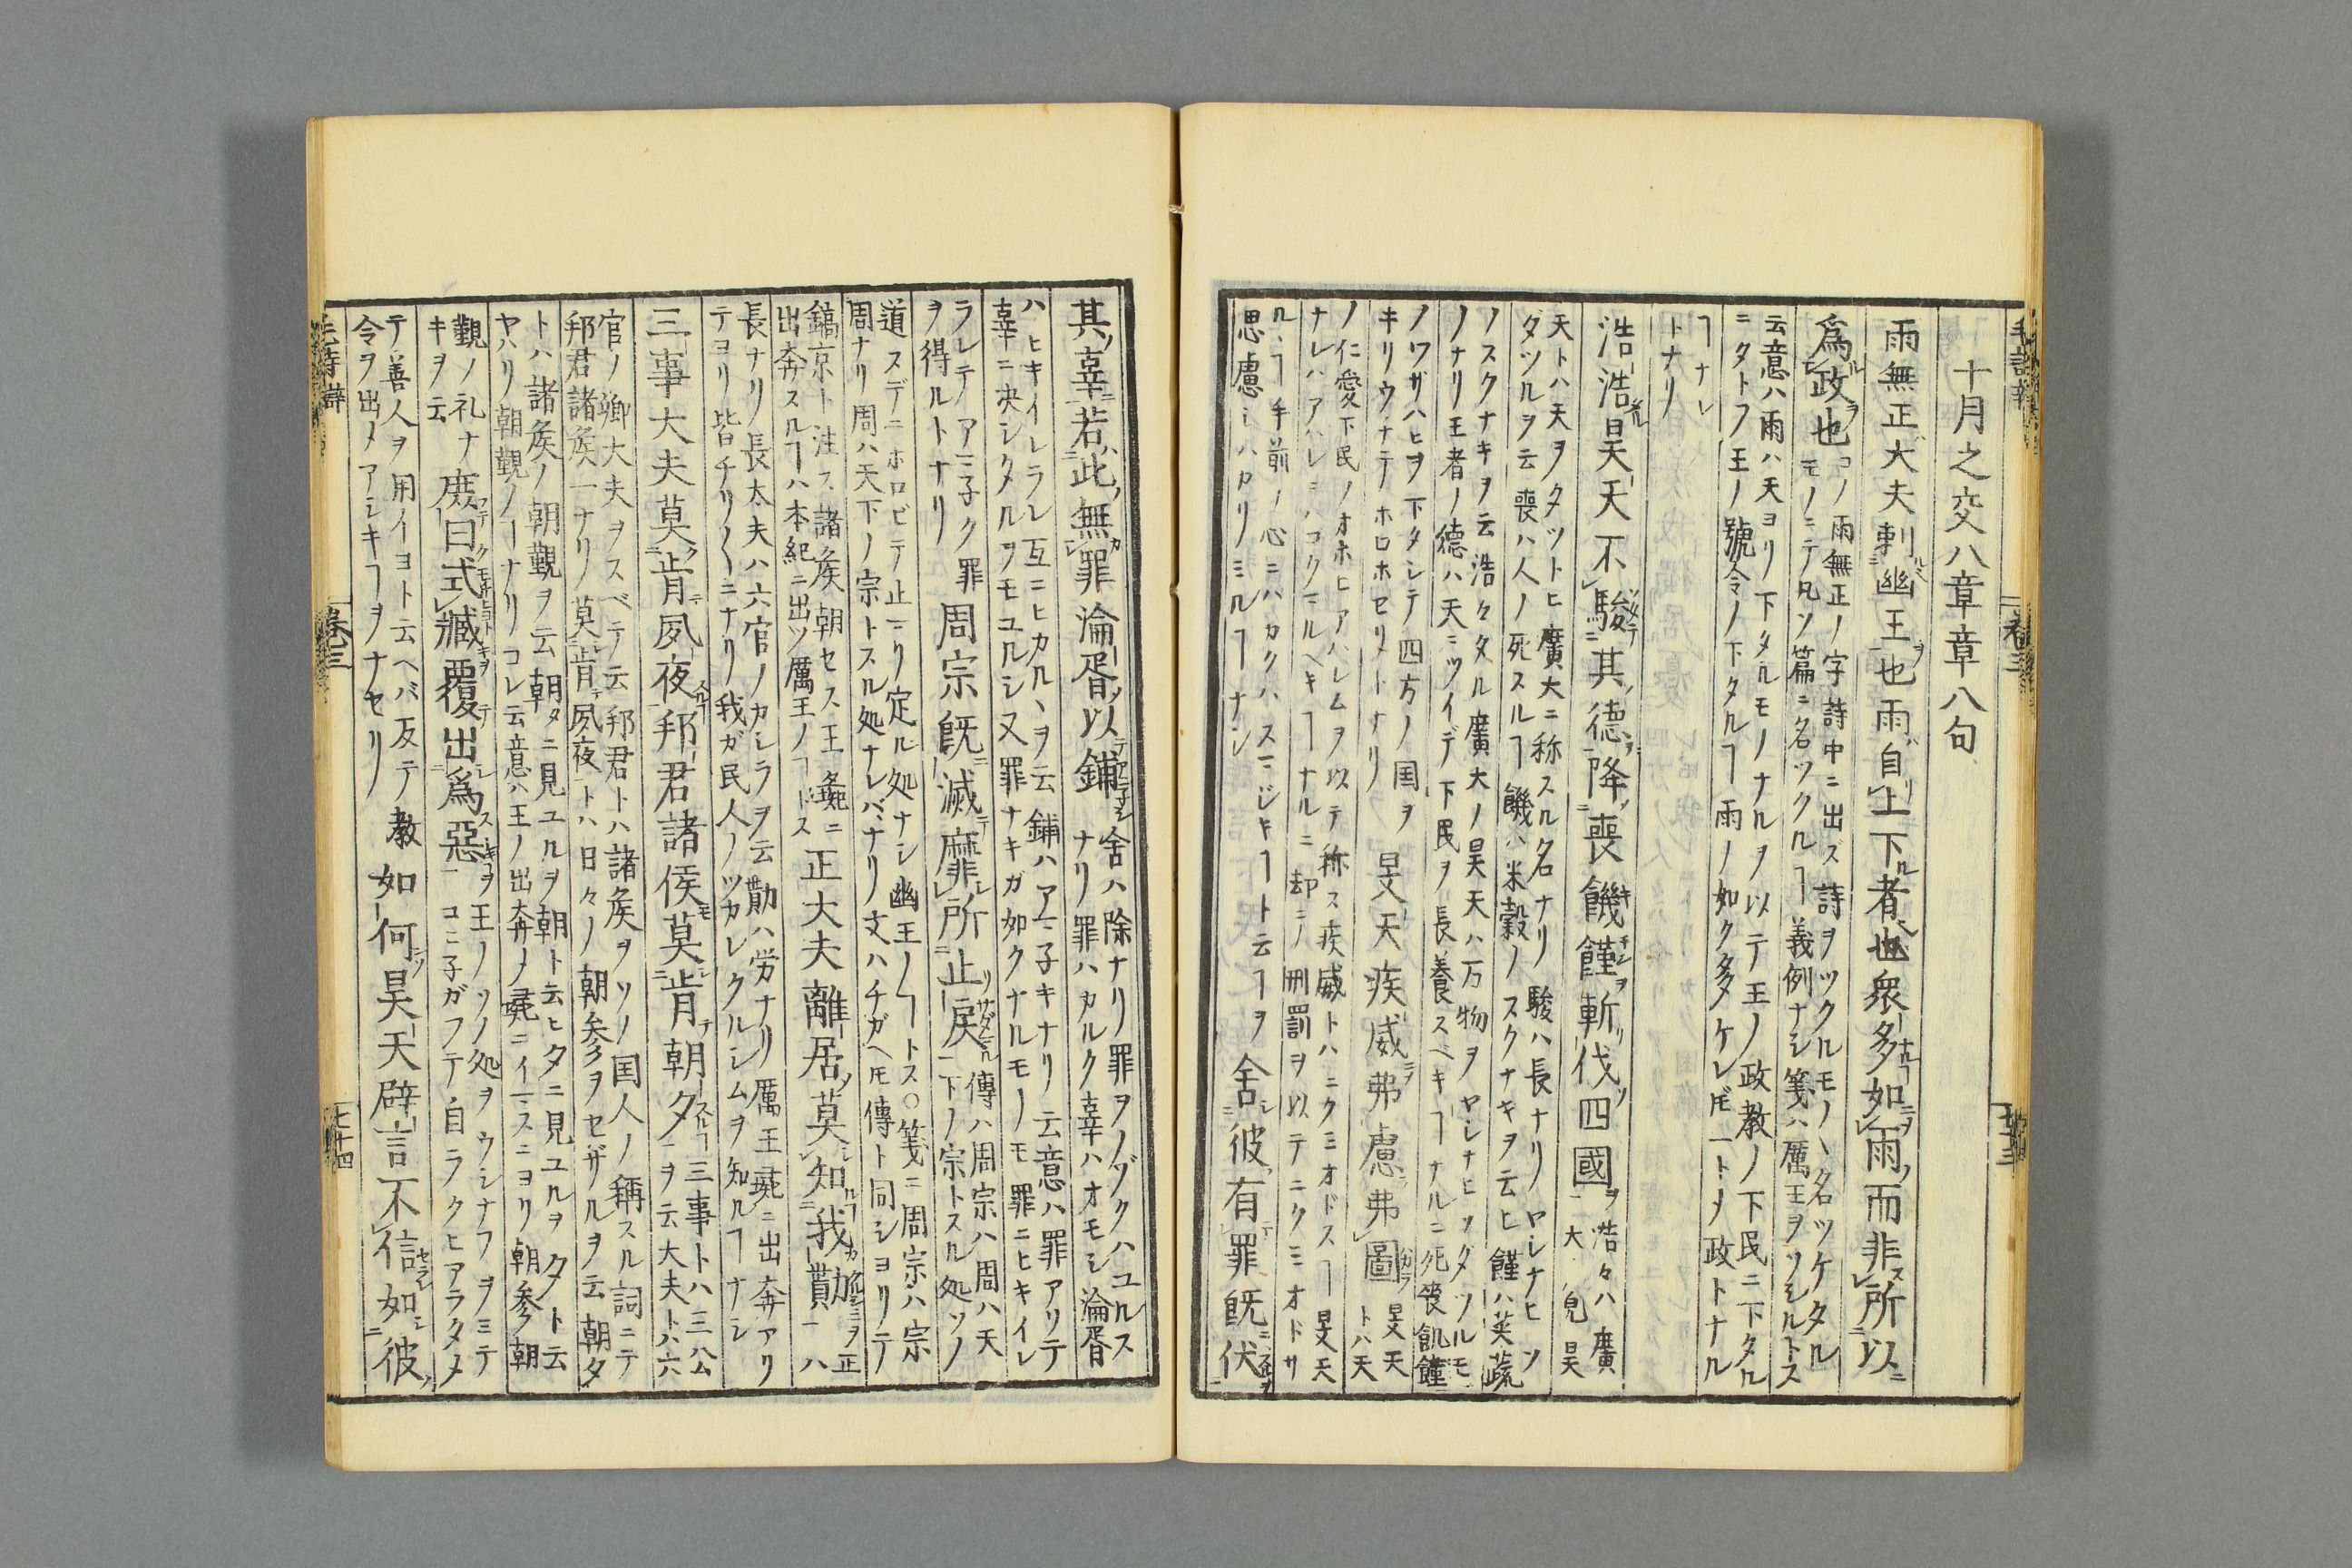 十月之交八章章八句
雨無正大夫刺幽王也雨自上下者也衆多如雨而非所以
爲政也
コノ雨無正ノ字詩中ニ出ズ詩ヲツクルモノヽ名ツケタル
モノニテ凡ソ篇ニ名ツクルヿ義例ナシ箋ハ厲王ヲソシルトス
云意ハ雨ハ天ヨリ下タルモノナルヲ以テ王ノ政教ノ下民ニ下タル
ニタトフ王ノ號令ノ下タルヿ雨ノ如ク多ケレ𪜈一トメ政トナル
ヿナレ
トナリ
浩浩昊天不駿其德降喪饑饉斬伐四國
浩々ハ廣
大ノ皃昊
天トハ天ヲタツトヒ廣大ニ称スル名ナリ駿ハ長ナリヤシナヒソ
ダツルヲ云喪ハ人ノ死スルヿ饑ハ米穀ノスクナキヲ云ヒ饉ハ菜蔬
ノスクナキヲ云浩々タル廣大ノ昊天ハ万物ヲヤシナヒソダツルモ
ノナリ王者ノ德ハ天ニツイデ下民ヲ長養スベキヿナルニ死喪飢饉
ノワザハヒヲ下タシテ四方ノ国ヲ
キリウチテホロホセリトナリ
旻天疾威弗慮弗圖
旻天
トハ天
ノ仁愛下民ノオホヒアハレムヲ以テ称ス疾威トハニクミオドスヿ旻天
ナレハアハレミハコクミルヘキヿナルニ却テ刑罰ヲ以テニクミオドサ
ルヽヿ手前ノ心ニハカクハスマジキヿト云ヿヲ
思慮シハカリミルヿナシ
舍彼有罪既伏
其辜若此無罪淪胥以鋪
舍ハ除ナリ罪ヲノゾクハユルス
ナリ罪ハカルク辜ハオモシ淪胥
ハヒキイレラレ互ニヒカルヽヲ云鋪ハアマ子キナリ云意ハ罪アリテ
辜ニ决シタルヲモユルシ又罪ナキガ如クナルモノモ罪ニヒキイレ
ラレテアマ子ク罪
ヲ得ルトナリ
周宗既滅靡所止戾
傳ハ周宗ハ周ハ天
下ノ宗トスル処ソノ
道スデニホロビテ止マリ定ル処ナシ幽王ノヿトス○箋ニ周宗ハ宗
周ナリ周ハ天下ノ宗トスル処ナレバナリ文ハチガヘ𪜈傳ト同シヨリテ
鎬京ト注ス諸矦朝セス王彘ニ
出奔スルヿハ本紀ニ出ツ厲王ノヿトス
正大夫離居莫知我勩
正
ハ
長ナリ長太夫ハ六官ノカシラヲ云勩ハ労ナリ厲王彘ニ出奔アリ
テヨリ皆チリ〱ニナリ我ガ民人ノツカレクルシムヲ知ルヿナシ
三事大夫莫肯夙夜邦君諸侯莫肯朝夕
三事トハ三公
ヲ云大夫トハ六
官ノ卿大夫ヲスベテ云邦君トハ諸矦ヲソノ国人ノ稱スル詞ニテ
邦君諸矦一ナリ莫肯夙夜トハ日々ノ朝参ヲセザルヲ云朝夕
トハ諸矦ノ朝覲ヲ云朝タニ見ユルヲ朝ト云ヒ夕ニ見ユルヲ夕ト云
ヤハリ朝覲ノヿナリコレ云意ハ王ノ出奔メ彘ニイマスニヨリ朝参朝
覲ノ礼ナ
キヲ云
庶曰式臧覆出爲惡
王ノソノ処ヲウシナフヲミテ
コヒ子ガフテ自ラクヒアラタメ
テ善人ヲ用イヨト云ヘバ反テ教
令ヲ出メアシキヿヲナセリ
如何昊天辟言不信如彼
毛詩辟 卷三 七十四